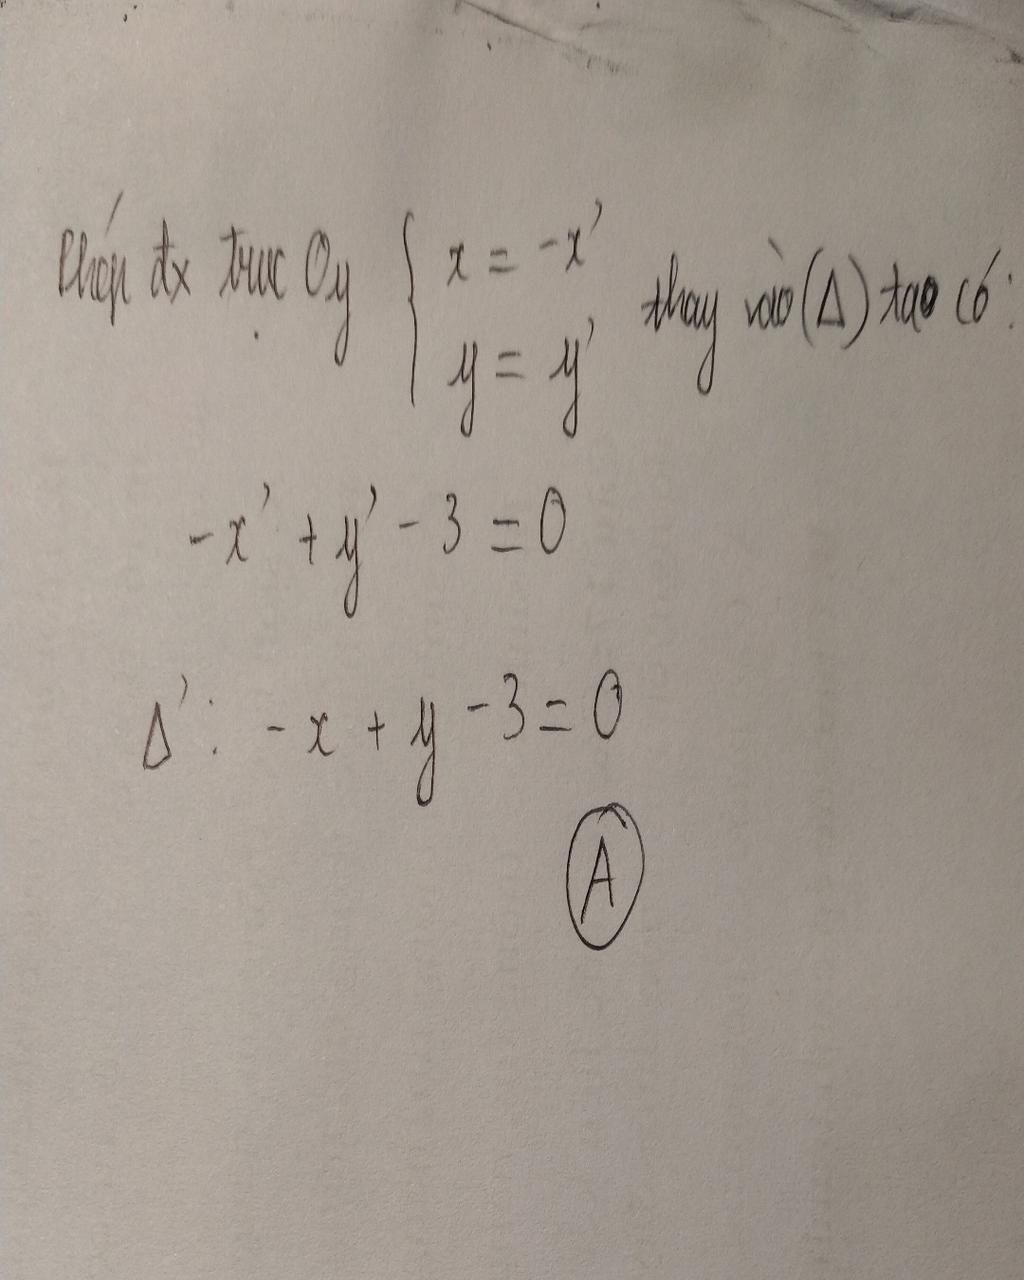 Phép đx trục Oy { x = -x' y = y' thay vào (Δ) tao có:
-x' + y' - 3 = 0
Δ': -x + y - 3 = 0
A